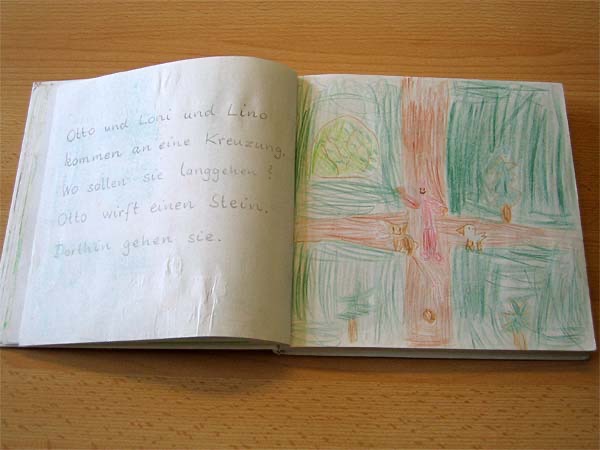 Otto und Loni und Lino
kommen an eine Kreuzung.
Wo sollen sie langgehen?
Otto wirft einen Stein.
Dorthin gehen sie.